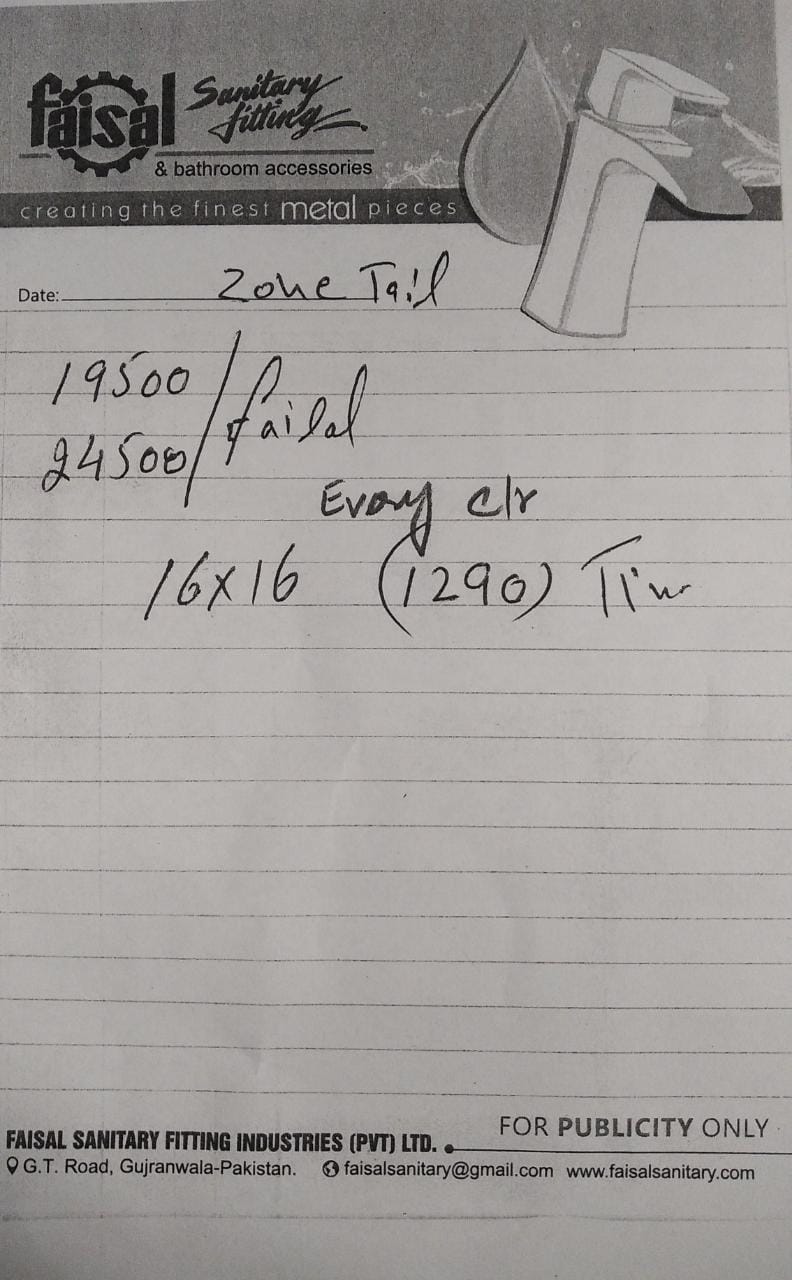 faisal Sanitary fitting
& bathroom accessories
creating the finest metal pieces
Date: Zone Tail
19500 / faisal
24500 /
Evory clr
16x16 (1290)
FOR PUBLICITY ONLY
FAISAL SANITARY FITTING INDUSTRIES (PVT) LTD.
G.T. Road, Gujranwala-Pakistan. faisalsanitary@gmail.com www.faisalsanitary.com